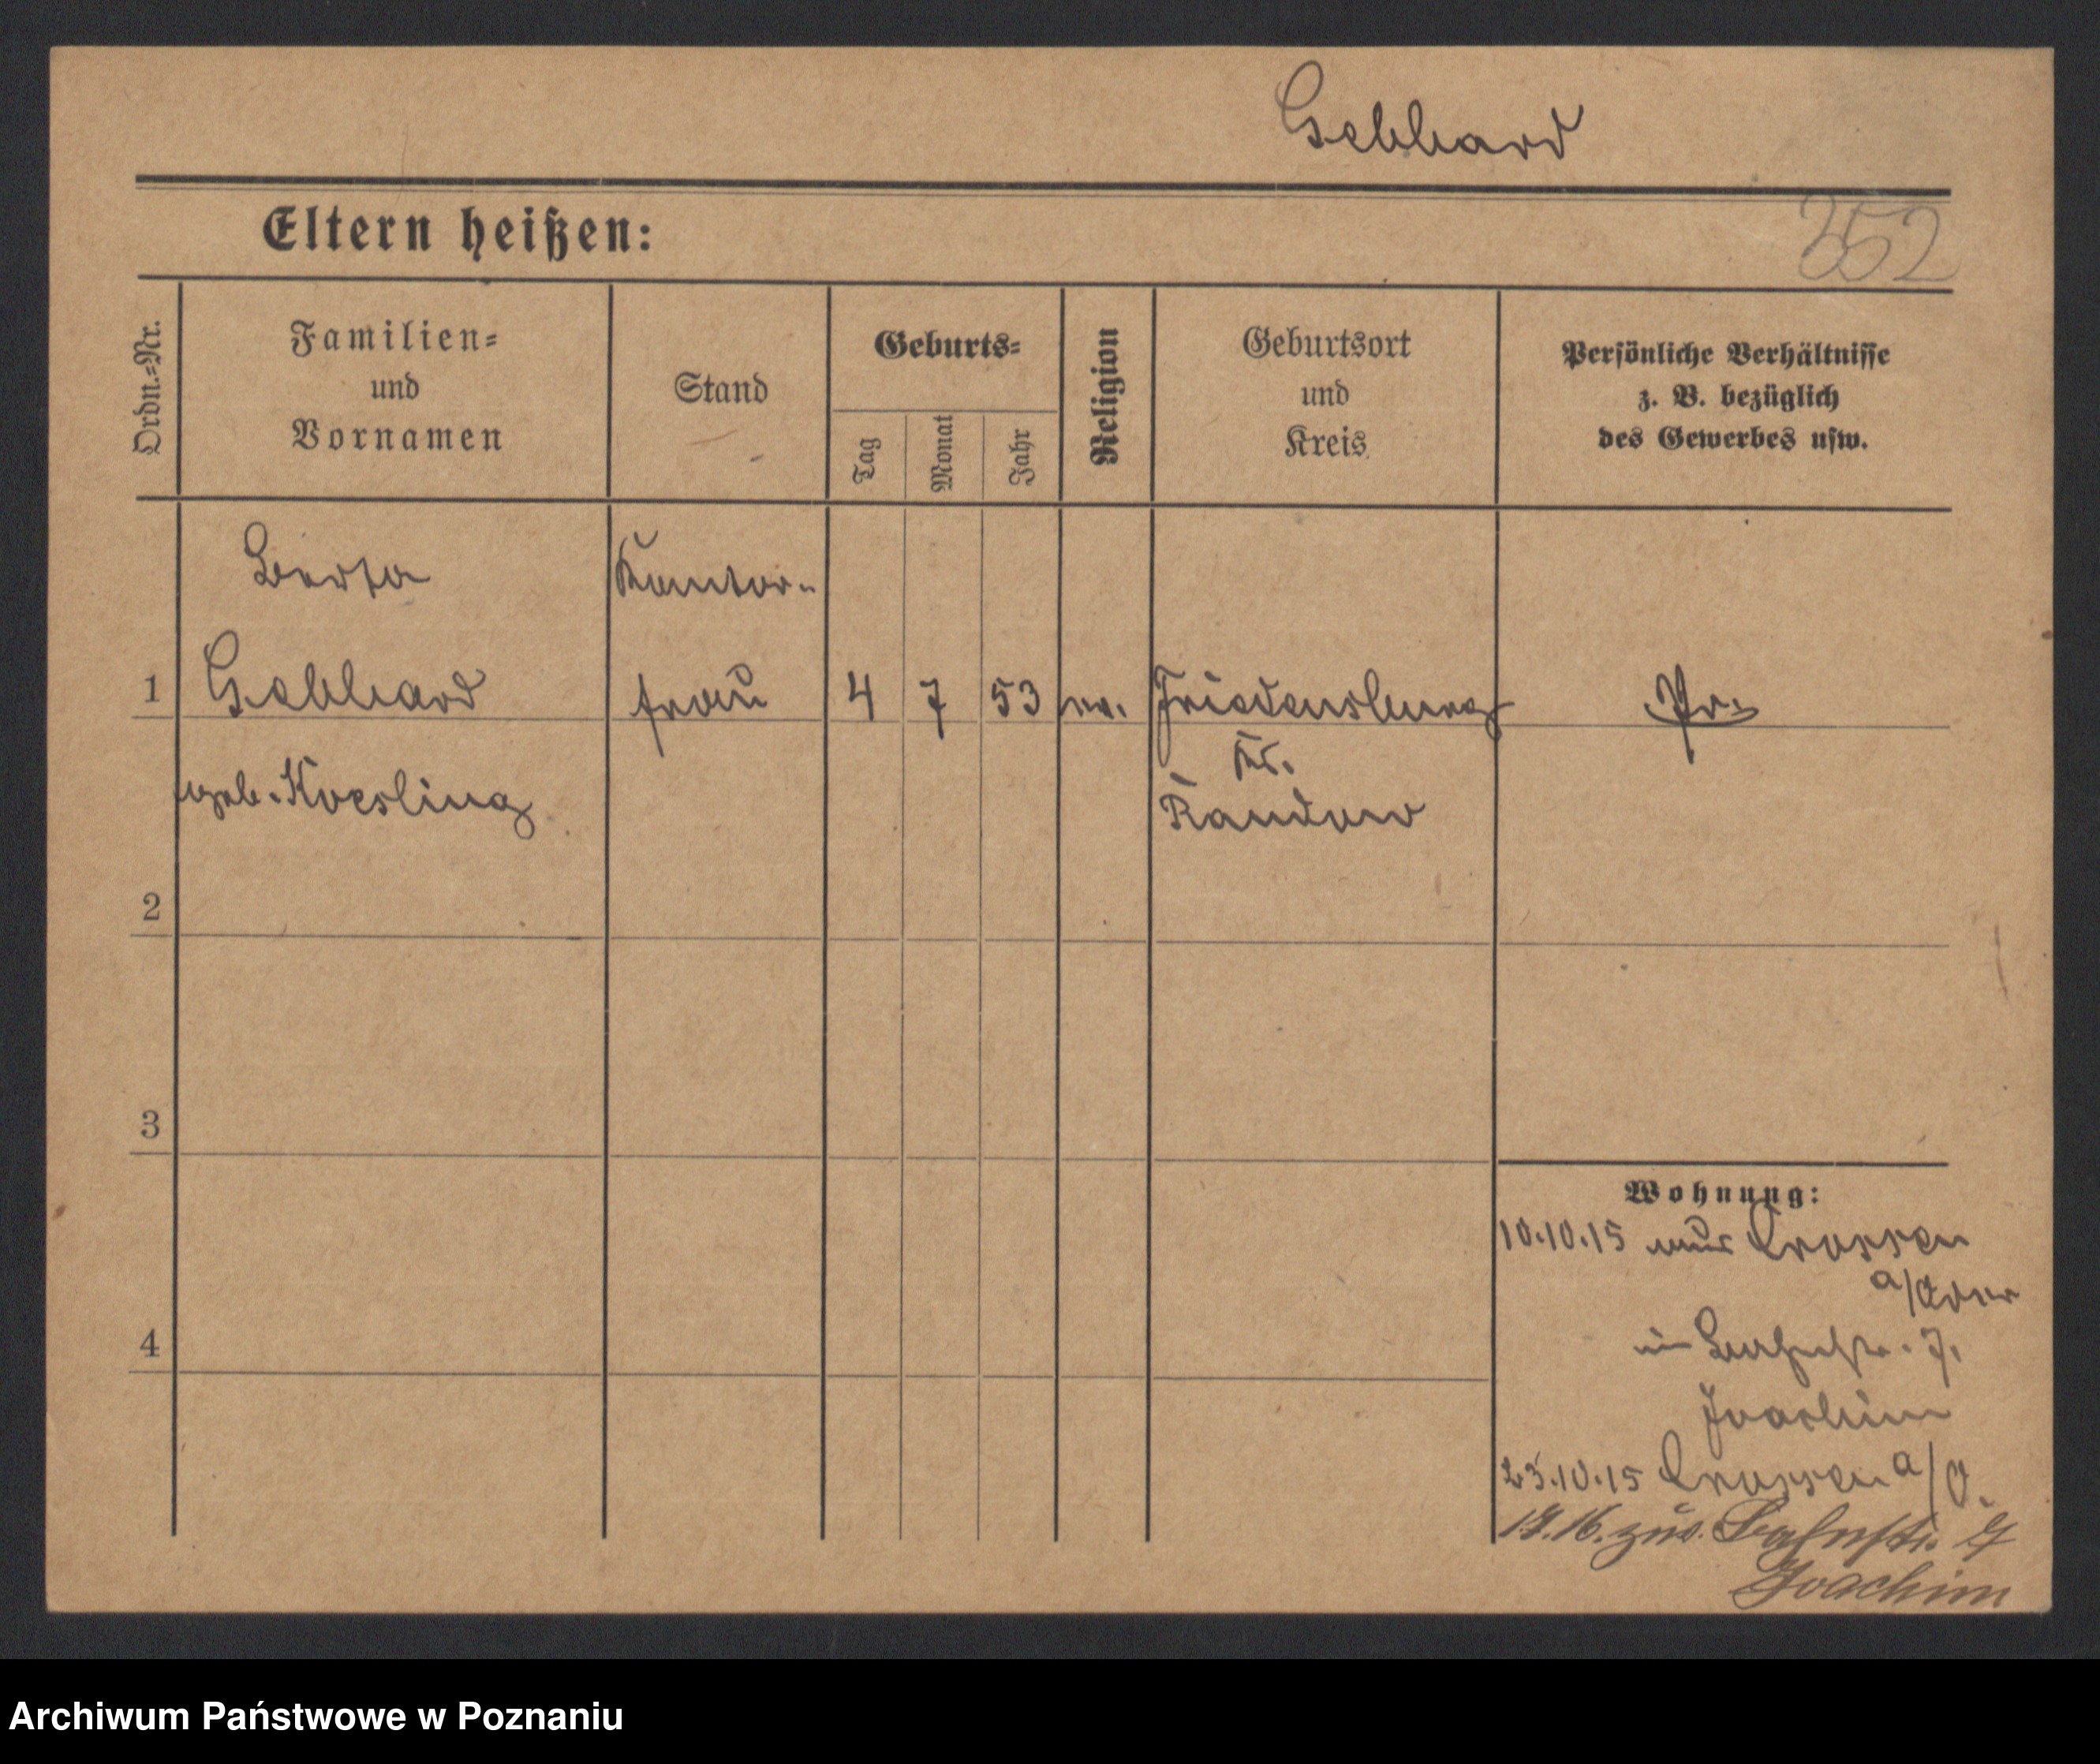 Gebhard
Eltern heißen:
352
Ordn.-Nr.
Familien-
und
Vornamen
Stand
Geburts-
Tag
Monat
Jahr
Religion
Geburtsort
und
Kreis
Persönliche Verhältnisse
z. B. bezüglich
des Gewerbes usw.
Berta
Kantor-
1
Gebhard
frau
4
7
53
ev.
Friedensburg
Pr.
Kr.
geb. Koesling
Randow
2
3
4
Wohnung:
10.10.15 aus Crossen
a/Oder
in Bahnstr. 7.
Joachim
23.10.15 Crossen a/O.
zus. Bahnstr. 7
Joachim
Archiwum Państwowe w Poznaniu